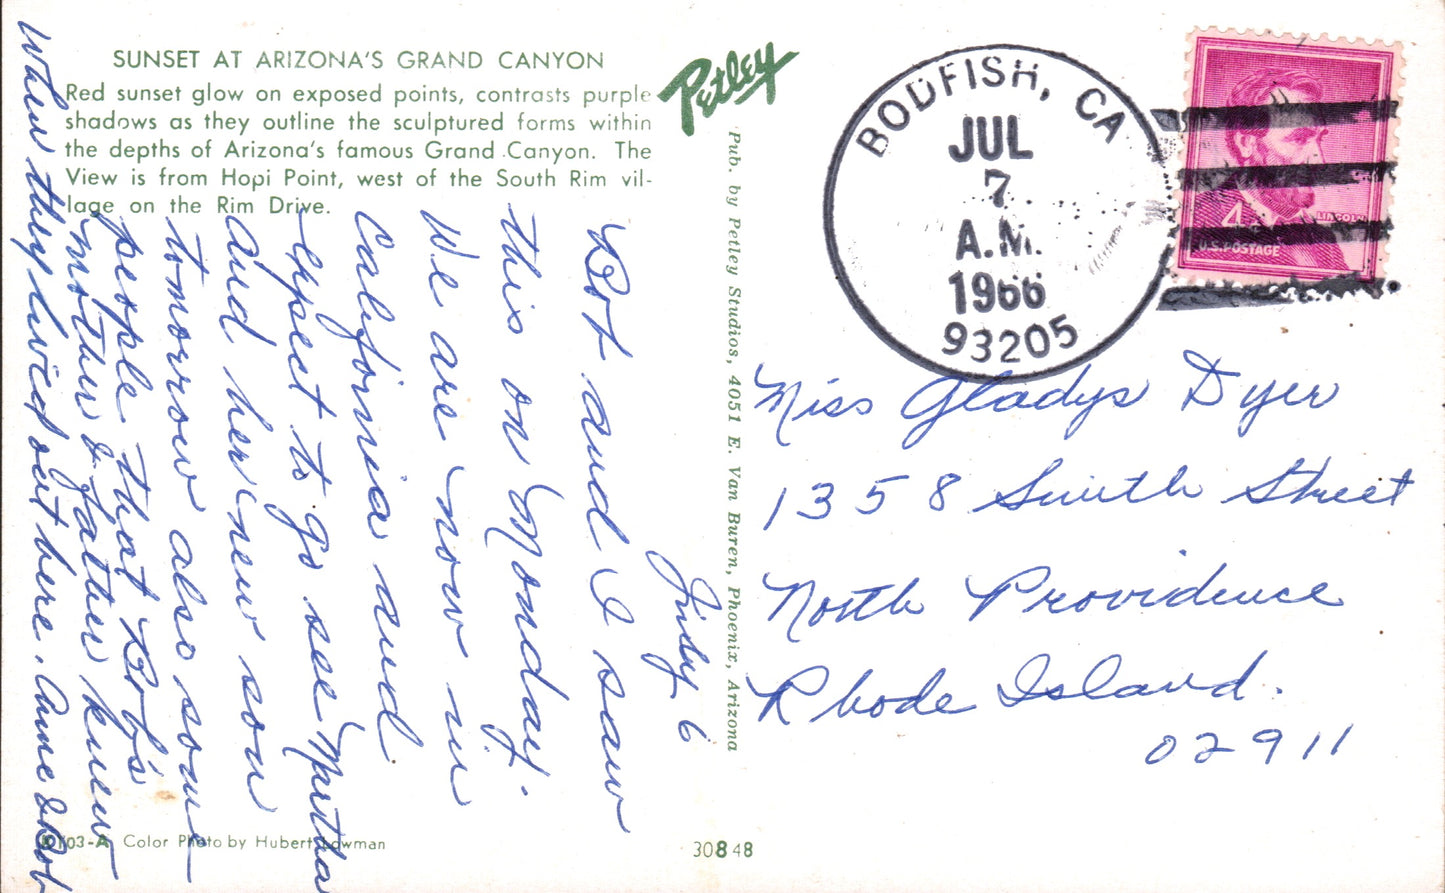 SUNSET AT ARIZONA'S GRAND CANYON
Red sunset glow on exposed points, contrasts purple
shadows as they outline the sculptured forms within
the depths of Arizona's famous Grand Canyon. The
View is from Hopi Point, west of the South Rim vil-
lage on the Rim Drive.
Petley
Pub. by Petley Studios, 4051 E. Van Buren, Phoenix, Arizona
BODFISH, CA
JUL
7
A.M.
1966
93205
4¢
LINCOLN
U.S. POSTAGE
July 6
Bob and I saw
this on Monday.
We are now in
California and
expect to go see Martha
and her new son
tomorrow also some
people that Bob's
mother & father knew
when they lived out here. Anne & Bob
Miss Gladys Dyer
1358 Smith Street
North Providence
Rhode Island.
02911
Color Photo by Hubert Lowman
30848